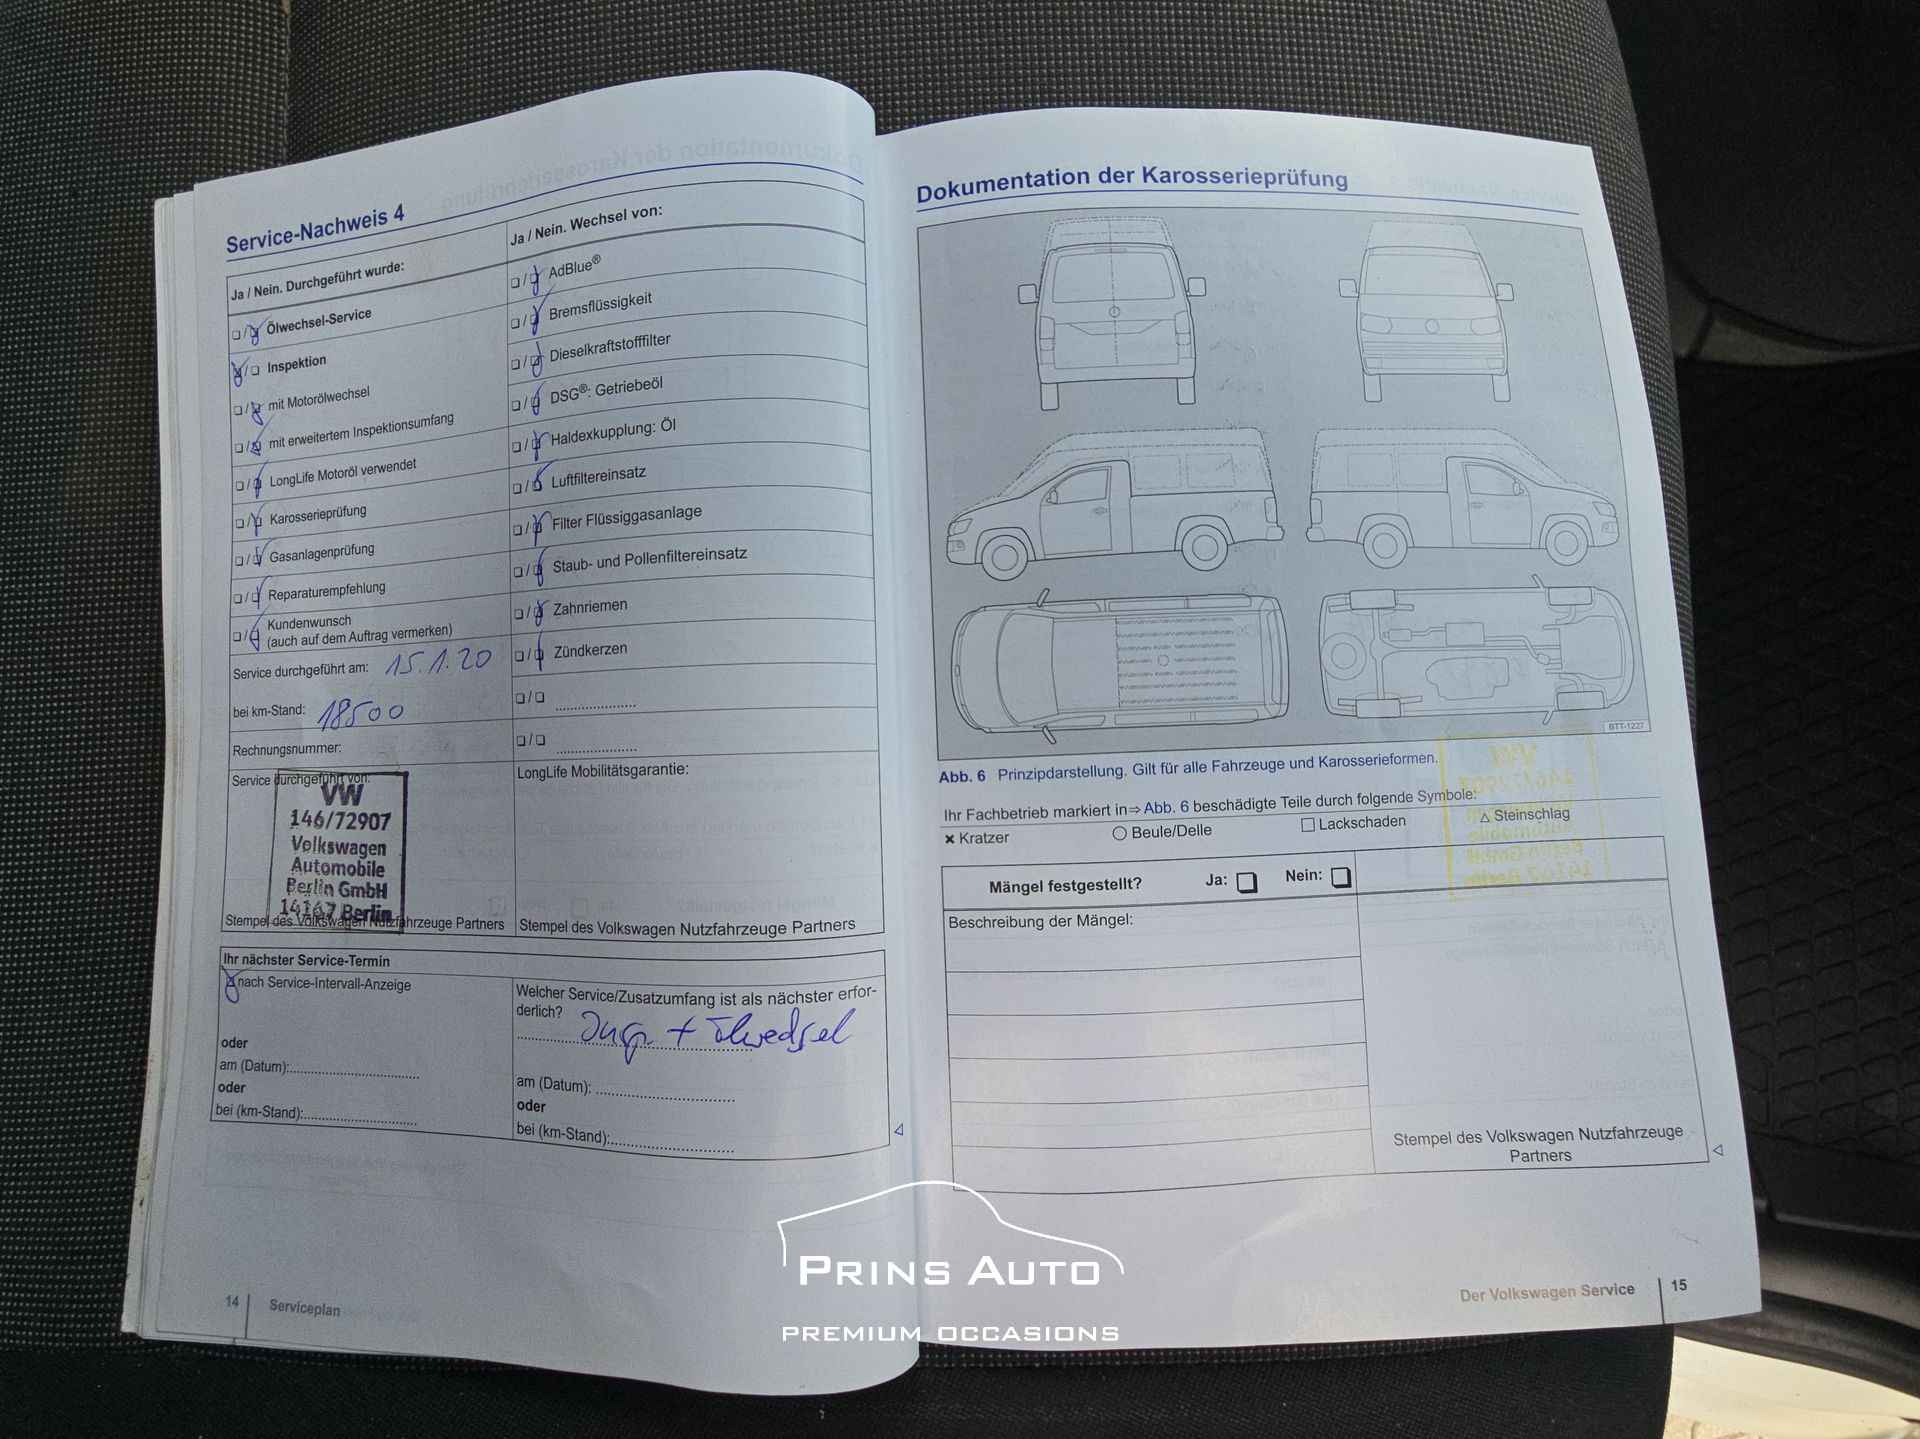 Service-Nachweis 4
Ja / Nein. Durchgeführt wurde:
❏ / ❏ Ölwechsel-Service
❏ / ❏ Inspektion
❏ / ❏ mit Motorölwechsel
❏ / ❏ mit erweitertem Inspektionsumfang
❏ / ❏ LongLife Motoröl verwendet
❏ / ❏ Karosserieprüfung
❏ / ❏ Gasanlagenprüfung
❏ / ❏ Reparaturempfehlung
❏ / ❏ Kundenwunsch
(auch auf dem Auftrag vermerken)
Service durchgeführt am: 15.1.20
bei km-Stand: 18500
Rechnungsnummer:
Service durchgeführt von:
VW
146/72907
Volkswagen
Automobile
Berlin GmbH
14167 Berlin
Stempel des Volkswagen Nutzfahrzeuge Partners
Ja / Nein. Wechsel von:
❏ / ❏ AdBlue®
❏ / ❏ Bremsflüssigkeit
❏ / ❏ Dieselkraftstofffilter
❏ / ❏ DSG®: Getriebeöl
❏ / ❏ Haldexkupplung: Öl
❏ / ❏ Luftfiltereinsatz
❏ / ❏ Filter Flüssiggasanlage
❏ / ❏ Staub- und Pollenfiltereinsatz
❏ / ❏ Zahnriemen
❏ / ❏ Zündkerzen
❏ / ❏ ....................
❏ / ❏ ....................
LongLife Mobilitätsgarantie:
Stempel des Volkswagen Nutzfahrzeuge Partners
Ihr nächster Service-Termin
❏ nach Service-Intervall-Anzeige
oder
am (Datum):
oder
bei (km-Stand):
Welcher Service/Zusatzumfang ist als nächster erfor-
derlich?
Insp. + Ölwechsel
am (Datum):
oder
bei (km-Stand):
14 Serviceplan
Dokumentation der Karosserieprüfung
BTT-1227
Abb. 6 Prinzipdarstellung. Gilt für alle Fahrzeuge und Karosserieformen.
Ihr Fachbetrieb markiert in ⇒ Abb. 6 beschädigte Teile durch folgende Symbole:
✖ Kratzer ○ Beule/Delle □ Lackschaden △ Steinschlag
Mängel festgestellt? Ja: ❏ Nein: ❏
Beschreibung der Mängel:
Stempel des Volkswagen Nutzfahrzeuge
Partners
Der Volkswagen Service 15
PRINS AUTO
PREMIUM OCCASIONS